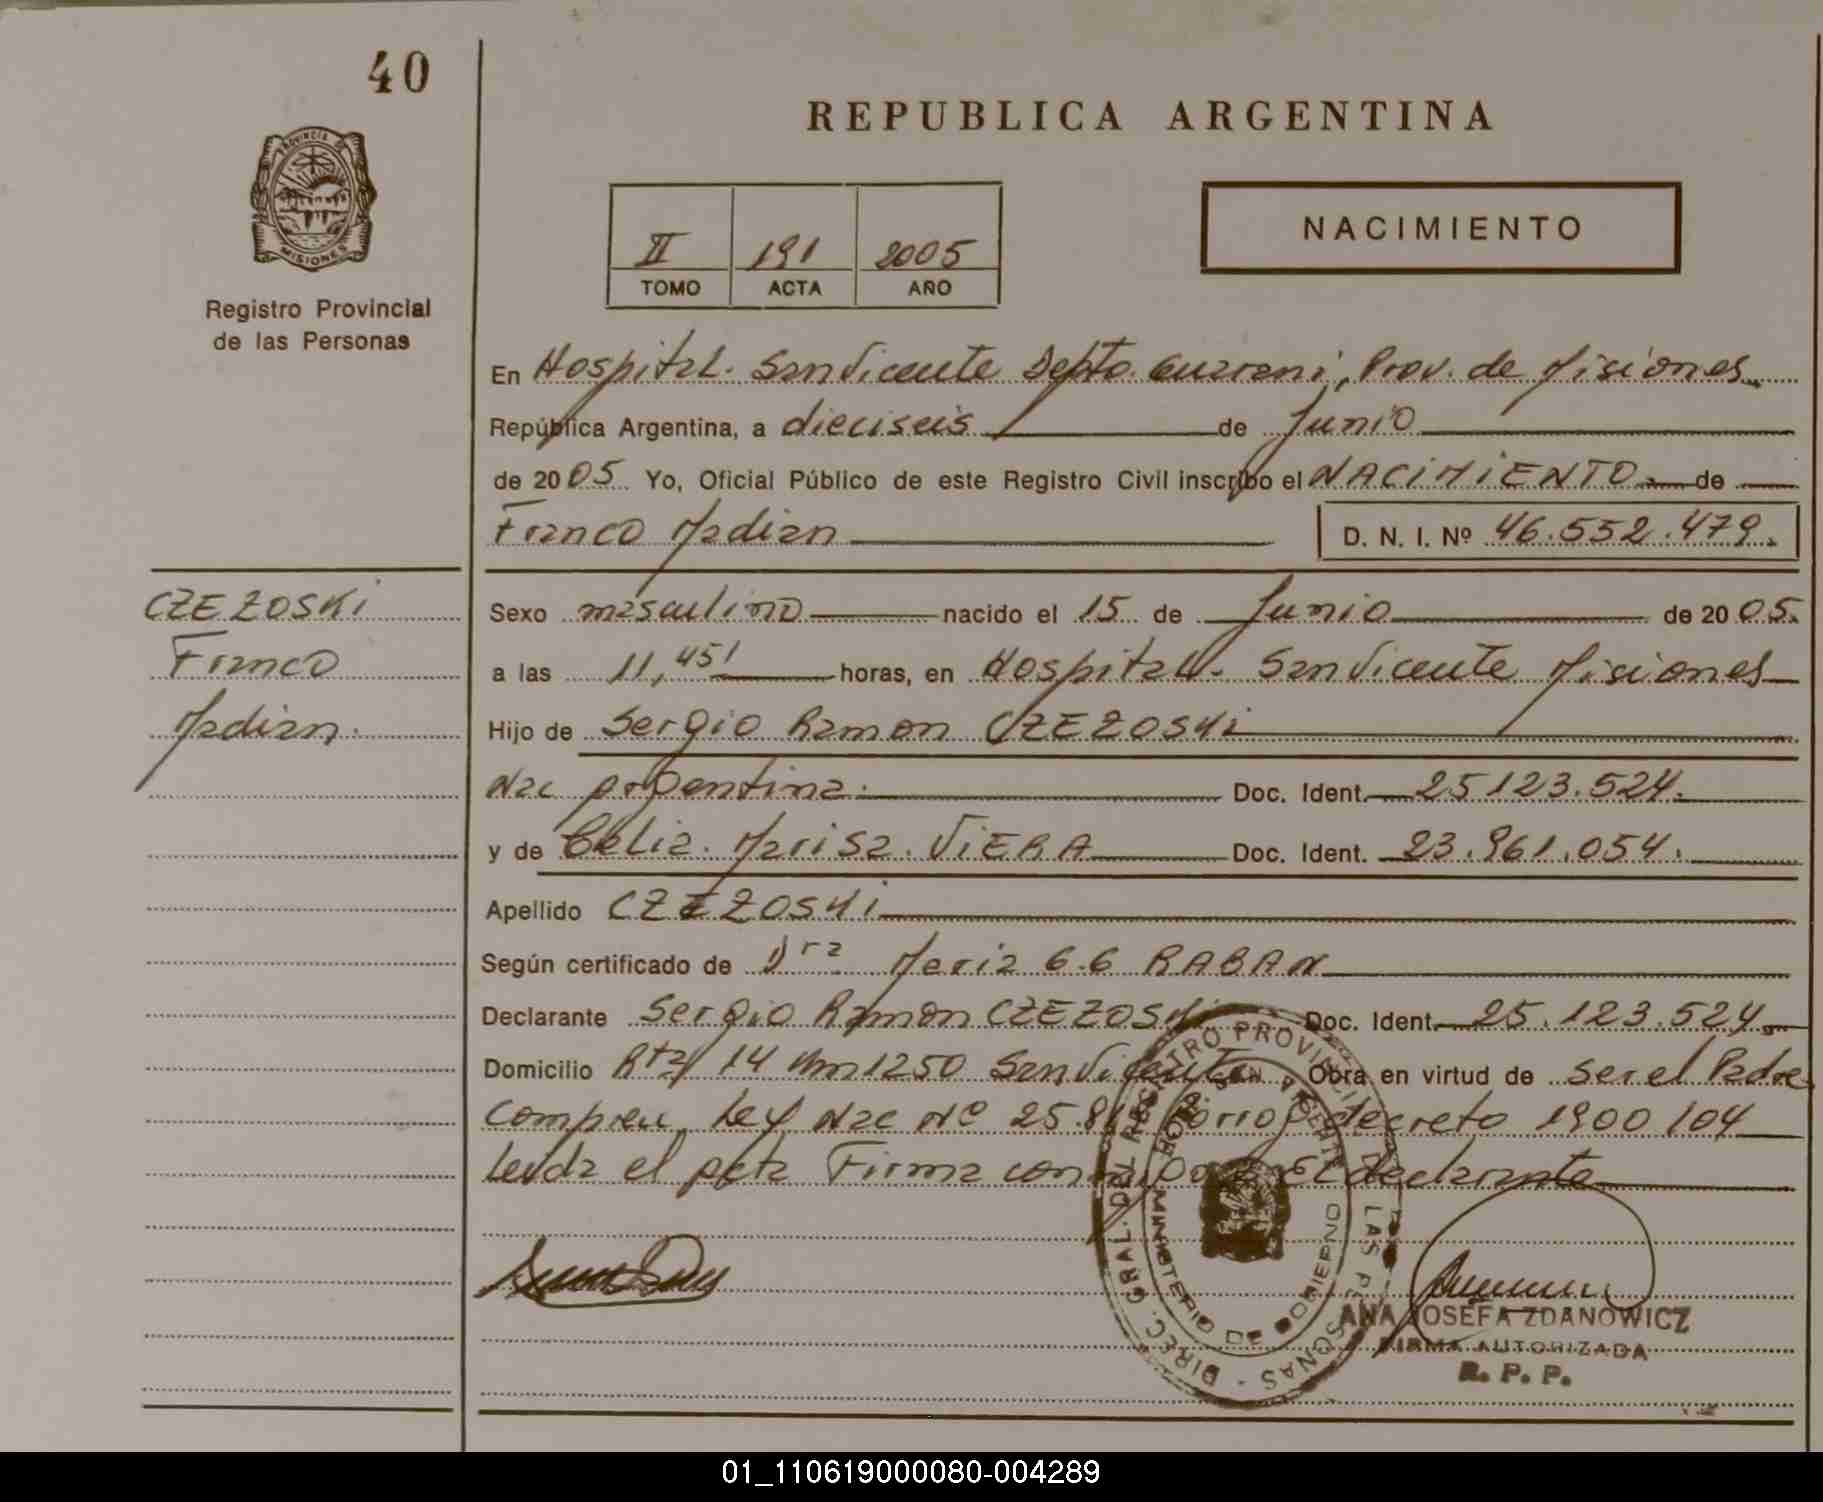 40
REPUBLICA ARGENTINA
PROVINCIA DE
MISIONES
Registro Provincial
de las Personas
II 191 2005
TOMO ACTA AÑO
NACIMIENTO
En Hospital. San Vicente Depto. Guarani, Prov. de Misiones
República Argentina, a dieciseis de Junio
de 2005 Yo, Oficial Público de este Registro Civil inscribo el NACIMIENTO de
Franco Madian
D. N. I. Nº 46.552.479.
CZEZOSKi
Franco
Madian.
Sexo masculino nacido el 15 de Junio de 2005.
a las 11,45' horas, en Hospital. San Vicente Misiones
Hijo de Sergio Ramon CZEZOSKi
Nac Argentina. Doc. Ident. 25.123.524.
y de Celia. Marisa. ViERA Doc. Ident. 23.961.054.
Apellido CZEZOSKi
Según certificado de Dra Maria G.G RABAN
Declarante Sergio Ramon CZEZOSKi Doc. Ident. 25.123.524
Domicilio Rta 14 Km 1250 San Vicente Obra en virtud de Ser el Padre
Ley Nac Nº 25.81 decreto 1900/04
Leida el Acta Firma el declarante
DIREC. GRAL. DEL REGISTRO PROVINCIAL DE LAS PERSONAS
MINISTERIO DE GOBIERNO
ANA JOSEFA ZDANOWICZ
FIRMA AUTORIZADA
R. P. P.
01_110619000080-004289